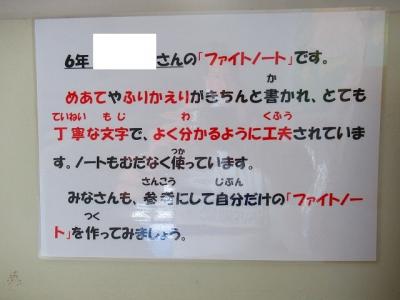 6年 さんの「ファイトノート」です。
か
めあてやふりかえりがきちんと書かれ、とても
ていねい もじ わ くふう
丁寧な文字で、よく分かるように工夫されていま
つか
す。ノートもむだなく使っています。
さんこう じぶん
みなさんも、参考にして自分だけの「ファイトノー
つく
ト」を作ってみましょう。